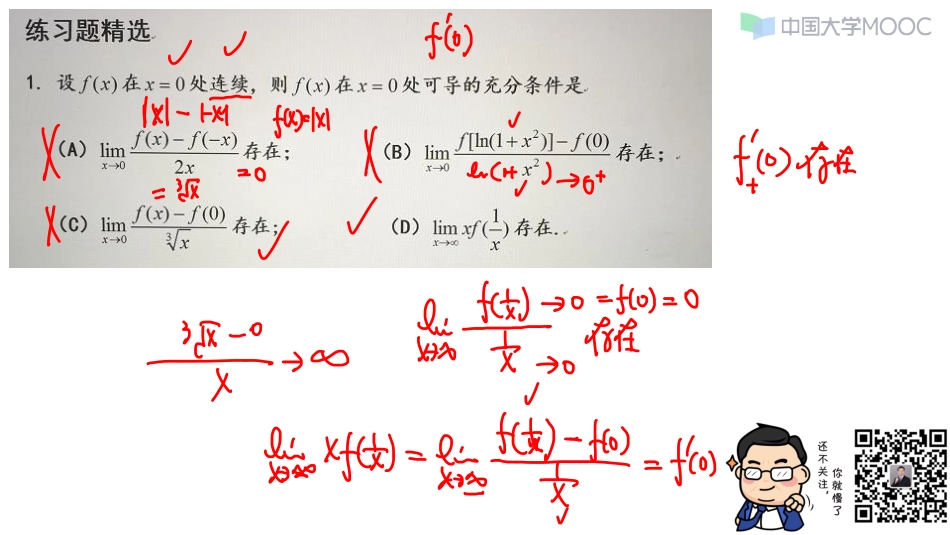 练习题精选
中国大学MOOC
f'(0)
1. 设 f(x) 在 x = 0 处连续，则 f(x) 在 x = 0 处可导的充分条件是
|x| - |-x|
f(x)=|x|
(A) lim x→0 f(x) − f(−x) / 2x 存在；
= 0
(B) lim x→0 f[ln(1 + x²)] − f(0) / x² 存在；
ln(1+ x²) → 0+
f'+(0) 存在
= ∛x
(C) lim x→0 f(x) − f(0) / ∛x 存在；
(D) lim x→∞ xf(1/x) 存在.
∛x − 0 / x → ∞
lim x→∞ f(1/x) → 0 = f(0) = 0 / 1/x → 0 存在
lim x→∞ xf(1/x) = lim x→∞ f(1/x) − f(0) / 1/x = f'(0)
还不关注，
你就慢了